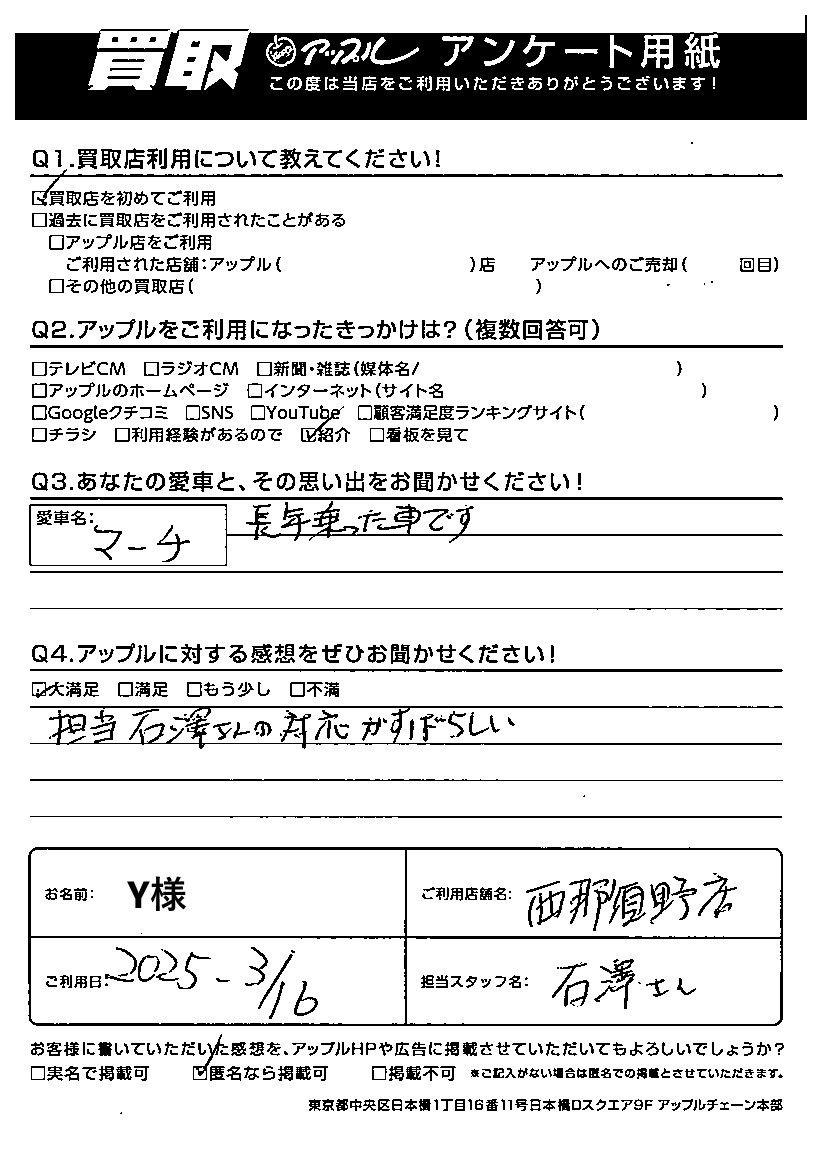 買取 アップル アンケート用紙
この度は当店をご利用いただきありがとうございます!
Q1.買取店利用について教えてください!
☑買取店を初めてご利用
□過去に買取店をご利用されたことがある
□アップル店をご利用
ご利用された店舗:アップル( )店 アップルへのご売却( 回目)
□その他の買取店( )
Q2.アップルをご利用になったきっかけは?(複数回答可)
□テレビCM □ラジオCM □新聞・雑誌(媒体名/ )
□アップルのホームページ □インターネット(サイト名 )
□Googleクチコミ □SNS □YouTube □顧客満足度ランキングサイト( )
□チラシ □利用経験があるので ☑紹介 □看板を見て
Q3.あなたの愛車と、その思い出をお聞かせください!
愛車名: マーチ 長年乗った車です
Q4.アップルに対する感想をぜひお聞かせください!
☑大満足 □満足 □もう少し □不満
担当 石澤さんの対応がすばらしい
お名前: Y様 ご利用店舗名: 西那須野店
ご利用日: 2025-3/16 担当スタッフ名: 石澤さん
お客様に書いていただいた感想を、アップルHPや広告に掲載させていただいてもよろしいでしょうか?
□実名で掲載可 ☑匿名なら掲載可 □掲載不可 ※ご記入がない場合は匿名での掲載とさせていただきます。
東京都中央区日本橋1丁目16番11号日本橋ロスクエア9F アップルチェーン本部